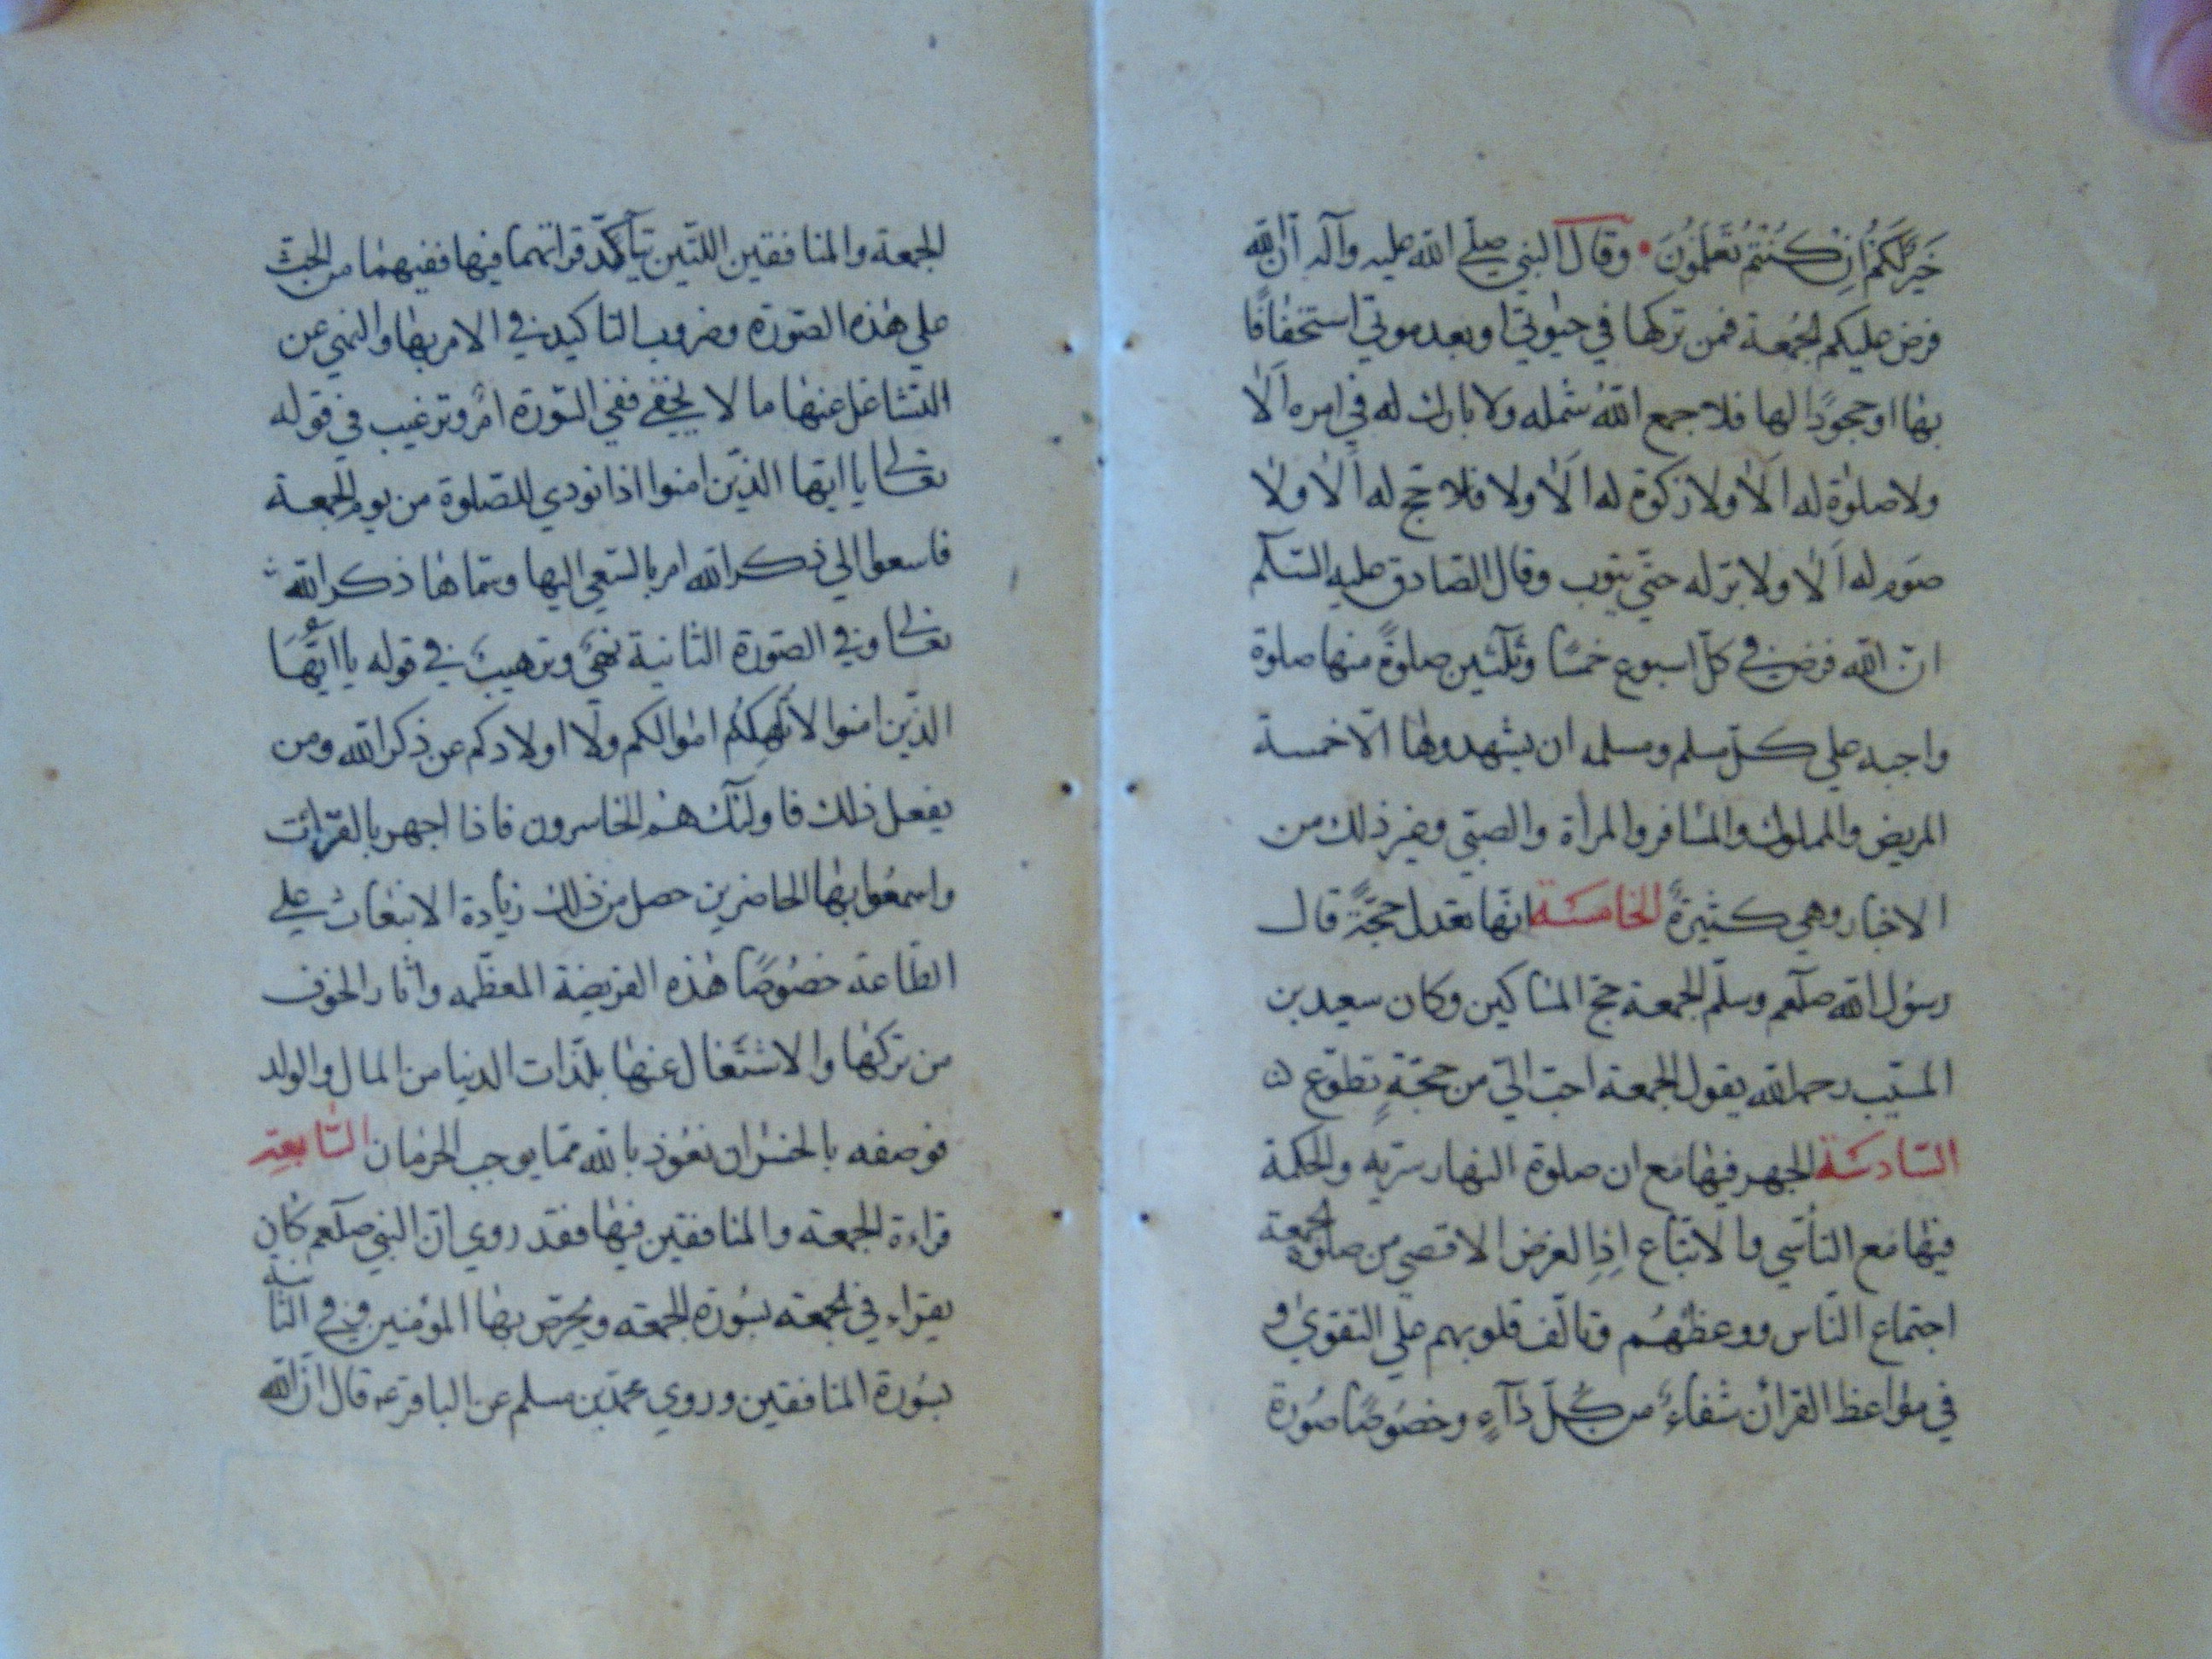 خَيْرٌ لَكُمْ اِنْ كُنْتُمْ تَعْلَمُونَ • وقال النبي صلي الله عليه وآله ان الله
فرض عليكم الجُمعة فمن تركها في حيٰوتي او بعد موتي استخفافًا
بها او جحودًا لها فلا جمع اللهُ شمله ولا بارك له في امره اَلَا
ولا صلوٰة له اَلَا ولا زكوة له اَلَا ولا فلا حج له اَلَا ولا
صَوم له اَلَا ولا بر له حتّي يتوب وقال الصّادق عليه السّلم
انّ الله فرض في كلّ اسبوع خمسًا وثلثين صلوةً منها صلوة
واجبه علي كلّ مسلم ومسلمه ان يشهدوها الّا خمسة
المريض والمملوك والمسافر والمرأة والصبيّ وغير ذلك من
الاخبار وهي كثيرةً الخامسَة انّها تعدل حجّةً قال
رسُول الله صلّعم وسلّم الجمعة حج المساكين وكان سعيد بن
المسيّب رحمه الله يقول الجمعة احبّ اليّ من حجّةٍ تطوّع
السّادسَة الجهر فيها مع ان صلوة النهار سريّه والحكمة
فيها مع التأسّي والاتبّاع اِذِ الغرض الاقصي من صلوة الجمعة
اجتماع النّاس ووعظهُم وتالّف قلوبهم علي التقويٰ و
في مواعظ القرآن شفاءً من كُلّ دَآءٍ وخصُوصًا صُورة
الجمعة والمنافقين اللتين يتأكّد قراتهما فيها ففيهما من الحثّ
علي هٰذه الصّورة وضروب التاكيد في الامر بها والنهي عن
التشاغل عنها ما لا يخفي ففي السّورة امرٌ وترغيب في قوله
تعالي يا ايّها الذّين امنوا اذا نودي للصّلوة من يوم الجمعة
فاسعوا الي ذكر الله امر بالسّعي اليها وسّماها ذكر الله
تعالي وفي الصّورة الثانية نهيٌ وترهيبٌ في قوله يا ايُّهَا
الذّين امنوا لا تُلهِكُم اموالكم ولَا اولادكم عن ذكر الله ومن
يفعل ذلك فاولئك هُم الخاسرون فاذا اجهر بالقرائت
واسمعُوا بها الحاضرين حصل من ذلك زيادة الانبعاث علي
الطّاعة خصُوصًا هٰذه الفريضة المعظّمه واثار الخوف
من تركها والاشتغال عنها بلذّات الدنيا من المال والولد
فوصفه بالخسران نعُوذ بالله ممّا يوجب الحرمان السّابعة
قراءة الجمعة والمنافقين فيها فقد روي انّ النبي صلّعم كان
يقراء في الجمعة بسُورة الجمعة ويُحرّض بها المؤمنين وفي الثانية
بسُورة المنافقين وروي محمّد بن مسلم عن الباقر ع قال انّ الله